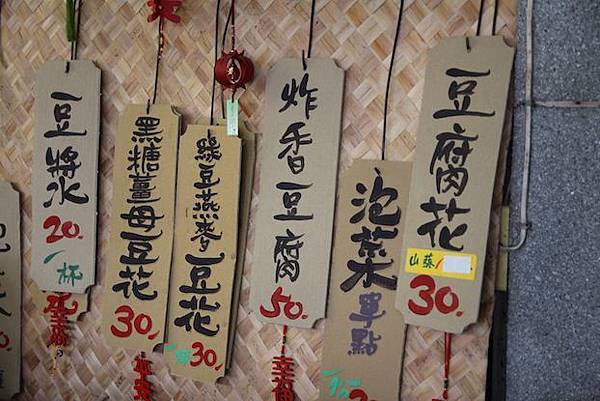 豆漿
20.
一杯
黑糖薑母豆花
30.
綠豆燕麥豆花
30.
炸香豆腐
50.
幸福
泡菜
單點
豆腐花
山葵
30.